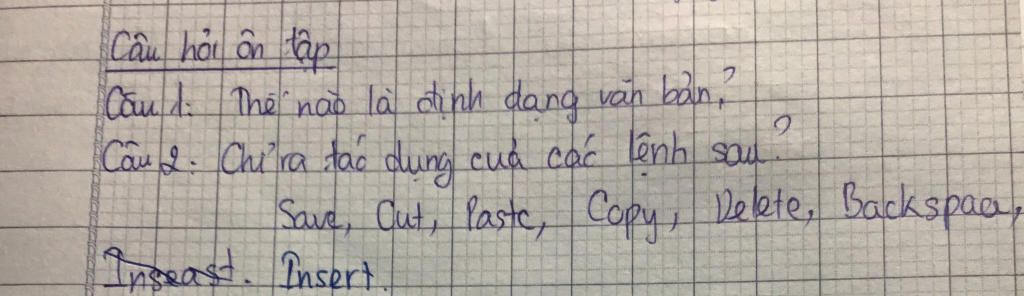 Câu hỏi ôn tập
Câu 1: Thế nào là định dạng văn bản?
Câu 2: Chỉ ra tác dụng của các lệnh sau?
Save, Cut, Paste, Copy, Delete, Backspace,
Inseast. Insert.